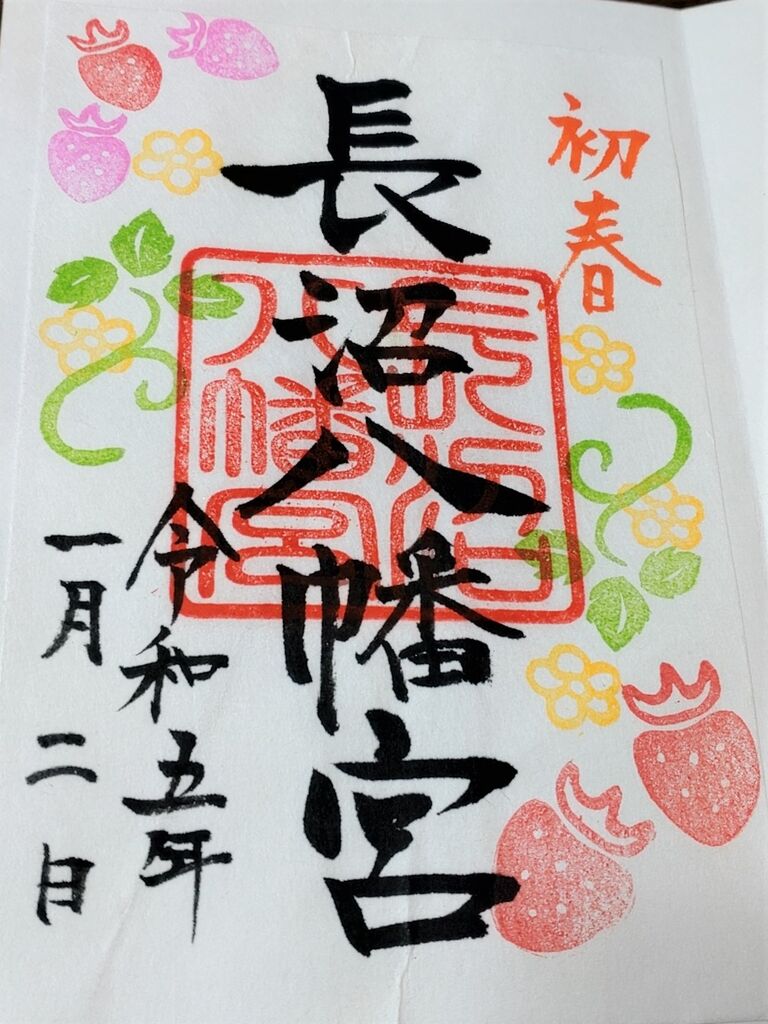 初春
長沼八幡宮
長沼八幡宮
令和五年
一月二日